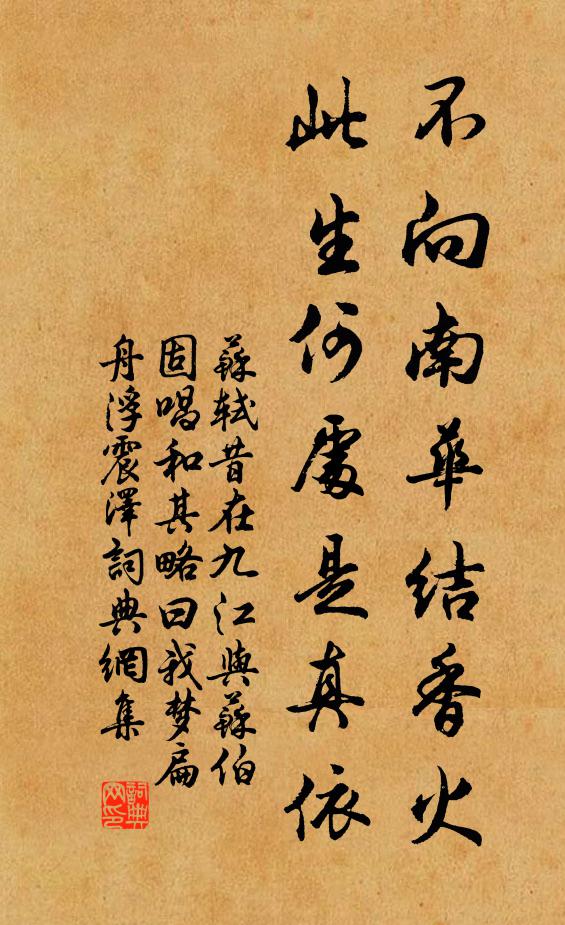 不向南華結香火
此生何處是真依
蘇軾昔在九江與蘇伯
固唱和其略曰我梦扁
舟浮震澤詞典網集
詞典
网印